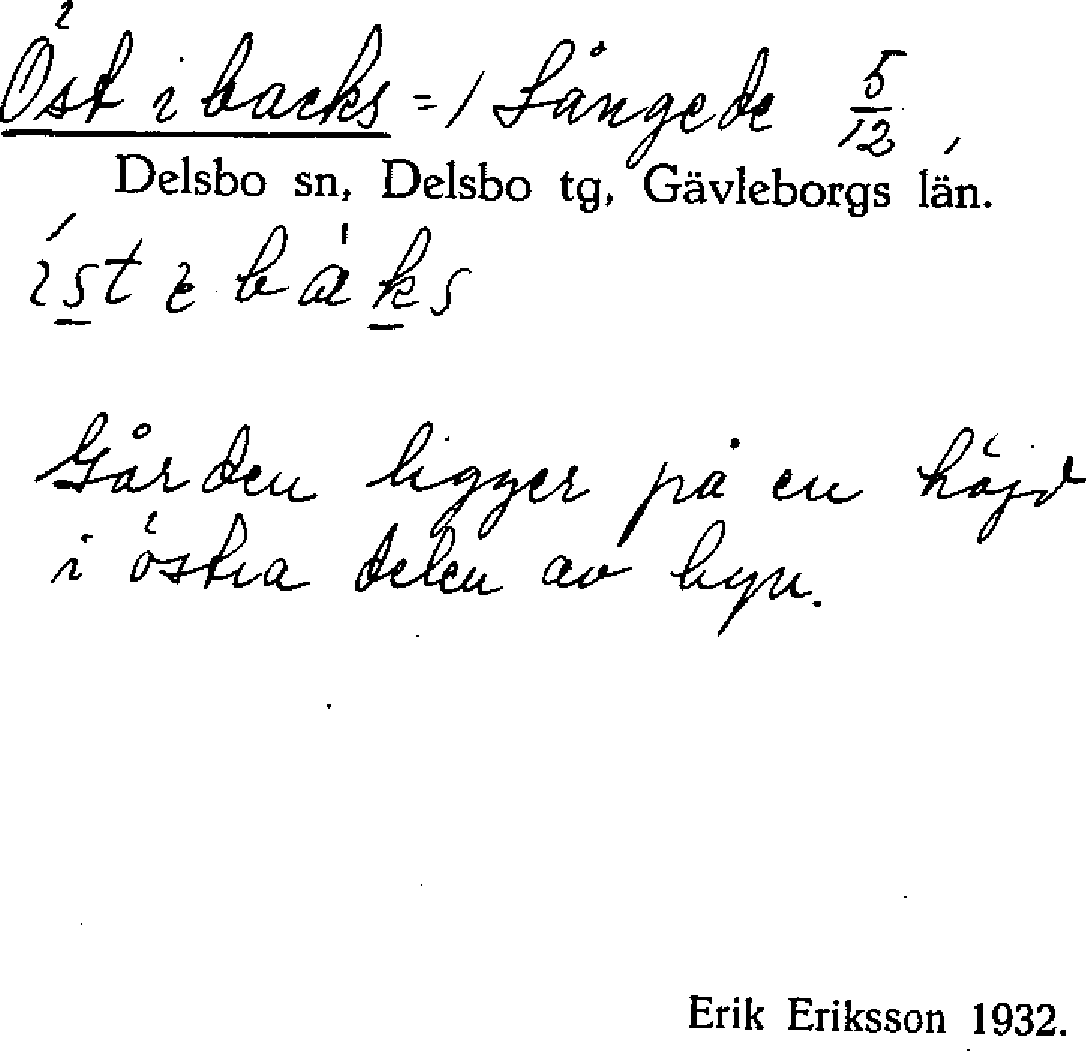 Öst i backs = 1 Långede 5/12,
Delsbo sn, Delsbo tg, Gävleborgs län.
Gården ligger på en höjd
i östra delen av byn.
Erik Eriksson 1932.